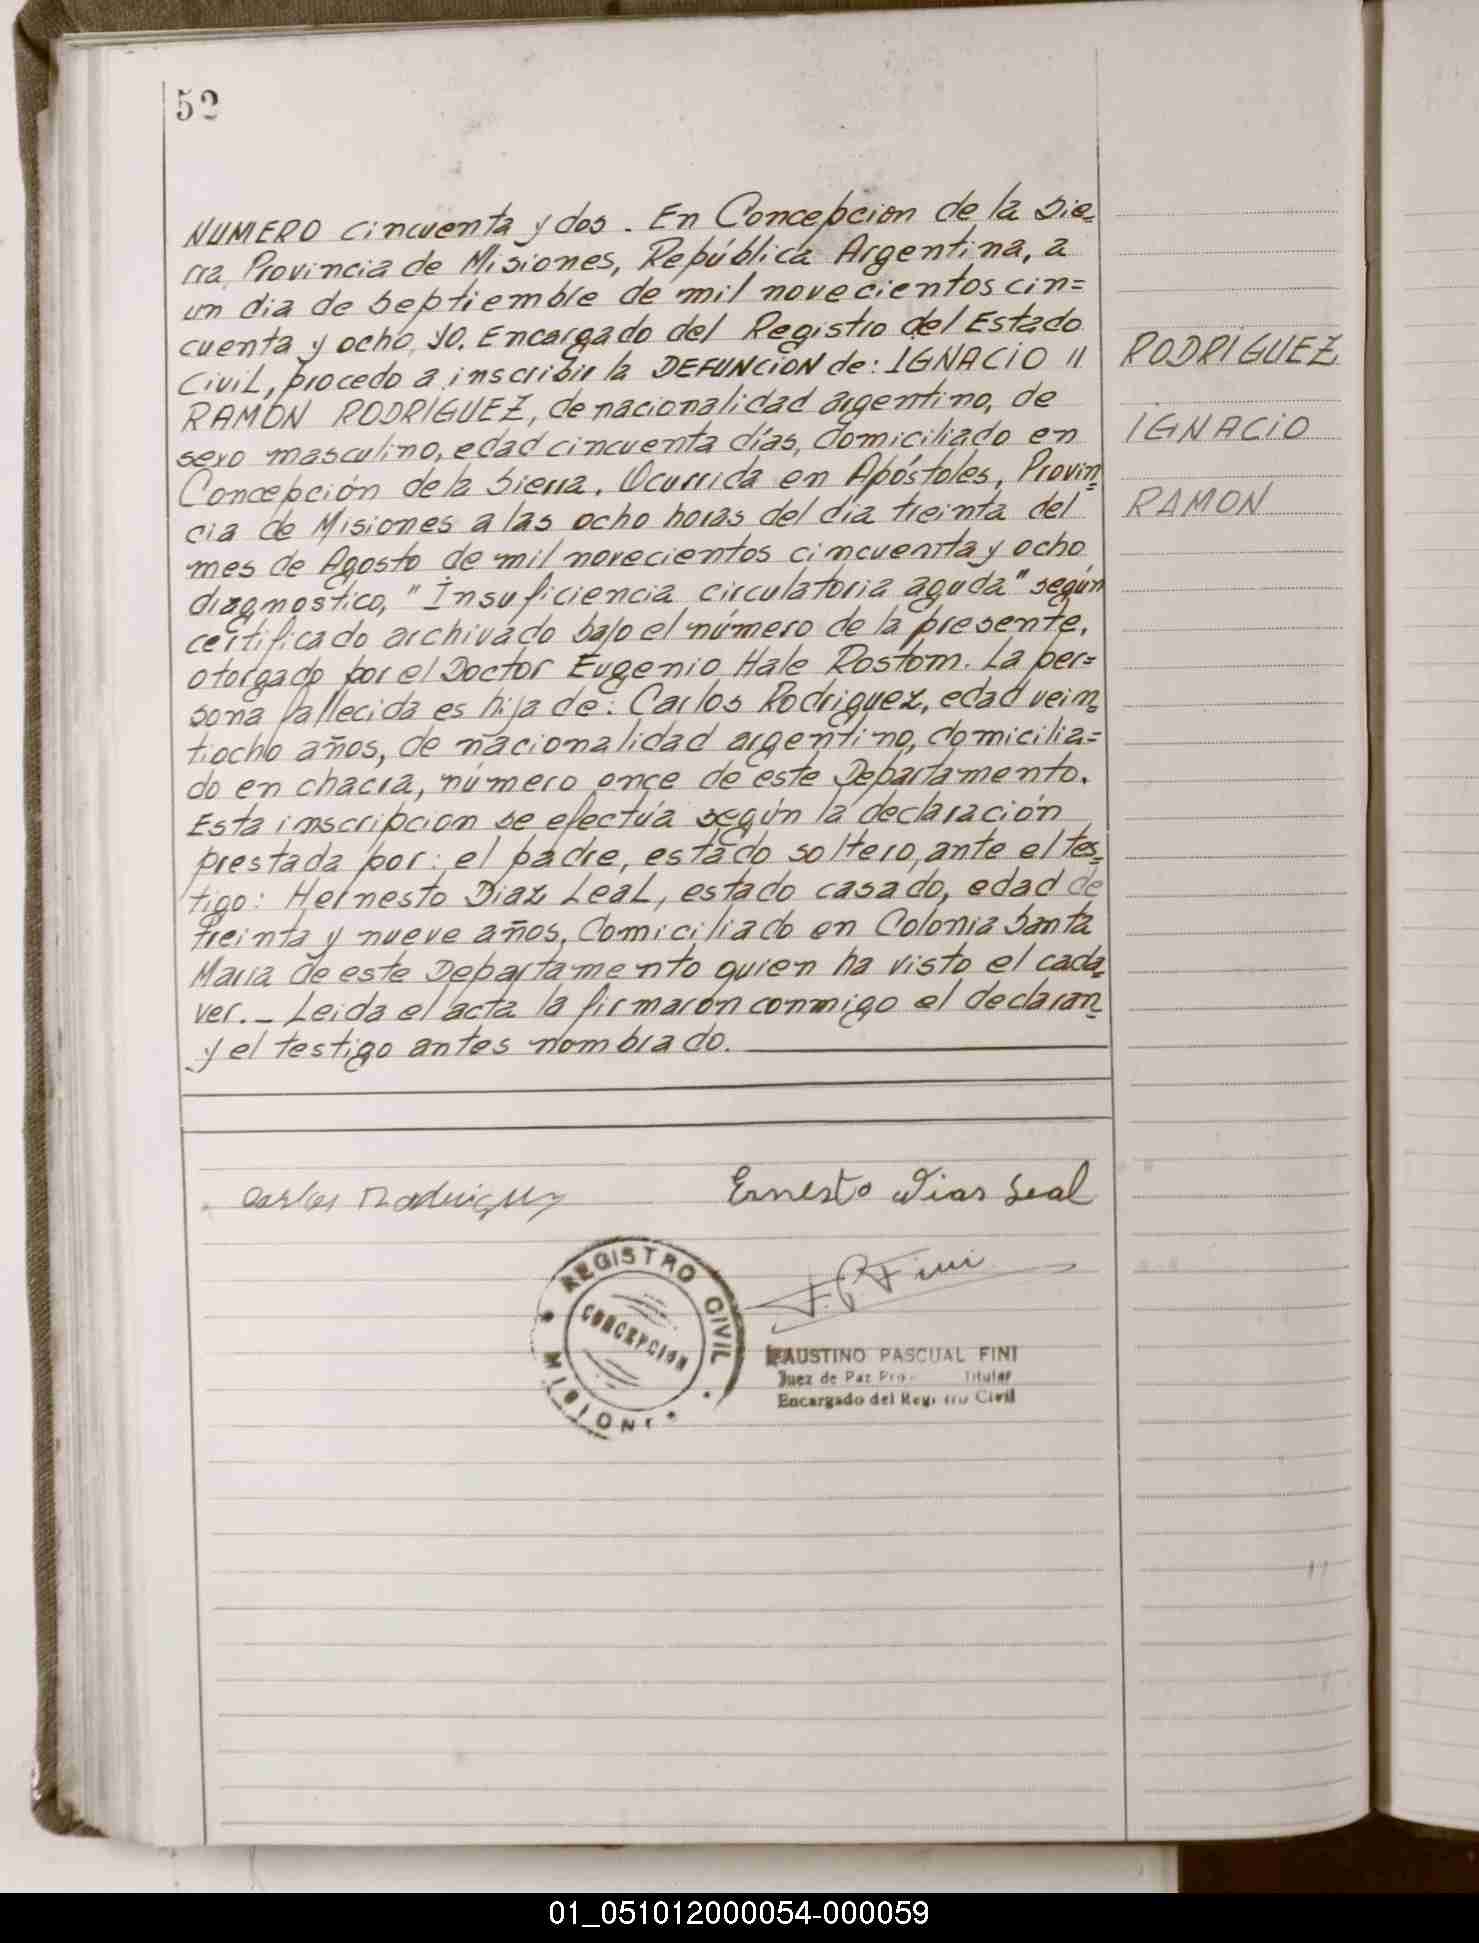 52
NUMERO cincuenta y dos. En Concepcion de la Sie=
rra Provincia de Misiones, República Argentina, a
un dia de Septiembre de mil novecientos cin=
cuenta y ocho, yo. Encargado del Registro del Estado
Civil, procedo a inscribir la DEFUNCION de: IGNACIO "
RAMON RODRIGUEZ, de nacionalidad argentino, de
sexo masculino, edad cincuenta días, domiciliado en
Concepción de la Sierra. Ocurrida en Apóstoles, Provin=
cia de Misiones a las ocho horas del día treinta del
mes de Agosto de mil novecientos cincuenta y ocho
diagnostico, "Insuficiencia circulatoria aguda" según
certificado archivado bajo el número de la presente,
otorgado por el Doctor Eugenio Hale Rostom. La per=
sona fallecida es hija de: Carlos Rodriguez, edad vein=
tiocho años, de nacionalidad argentino, domicilia=
do en chacra, número once de este Departamento.
Esta inscripcion se efectúa según la declaración
prestada por: el padre, estado soltero, ante el tes=
tigo: Hernesto Diaz Leal, estado casado, edad de
treinta y nueve años, domiciliado en Colonia Santa
Maria de este Departamento quien ha visto el cada=
ver._ Leida el acta la firmaron conmigo el declaran=
y el testigo antes nombrado.
RODRIGUEZ
IGNACIO
RAMON
Carlos Rodriguez
Ernesto Dias Leal
F. P. Fini
REGISTRO CIVIL
CONCEPCION
MISION
FAUSTINO PASCUAL FINI
Juez de Paz Titular
Encargado del Registro Civil
01_051012000054-000059